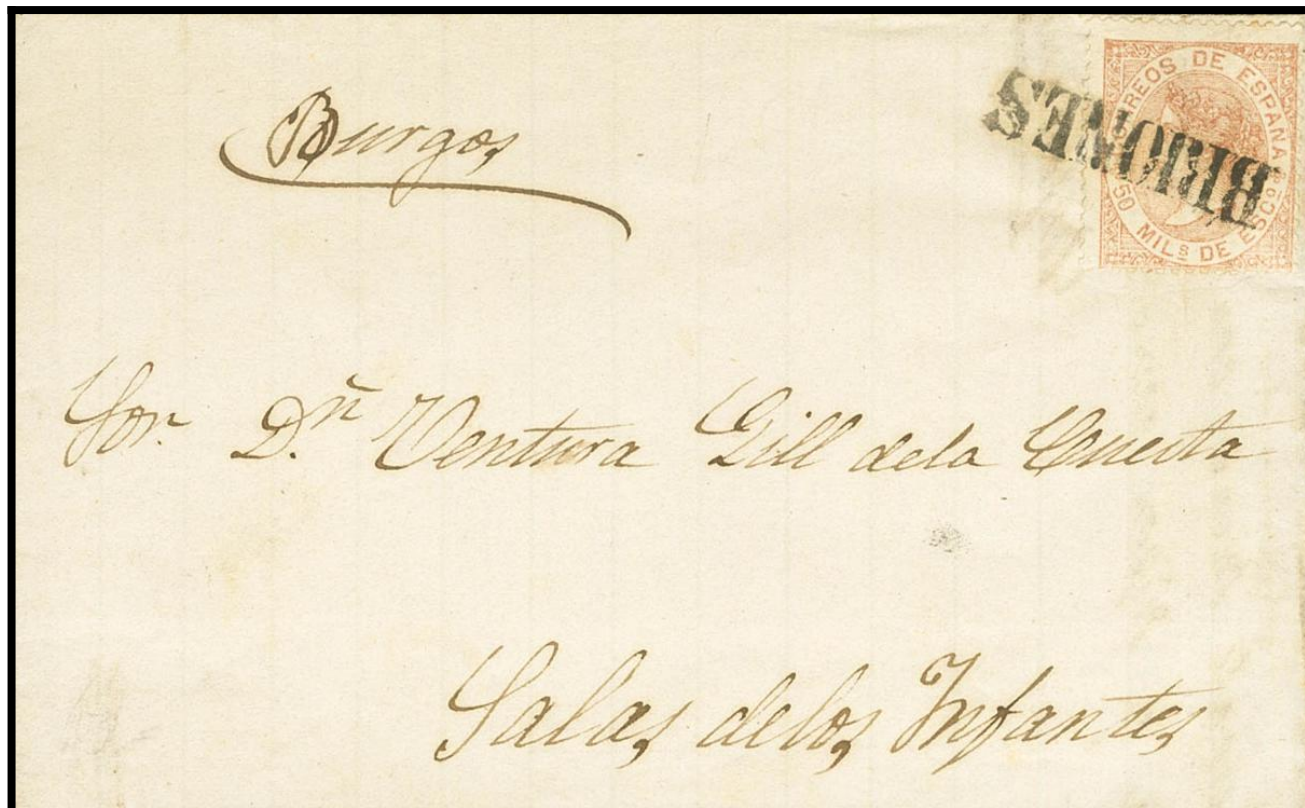 Burgos
CORREOS DE ESPAÑA
BRIONES
50 MILS DE ESCOS
Sor. Dn. Ventura Gill dela Cuesta
Salas delos Infantes